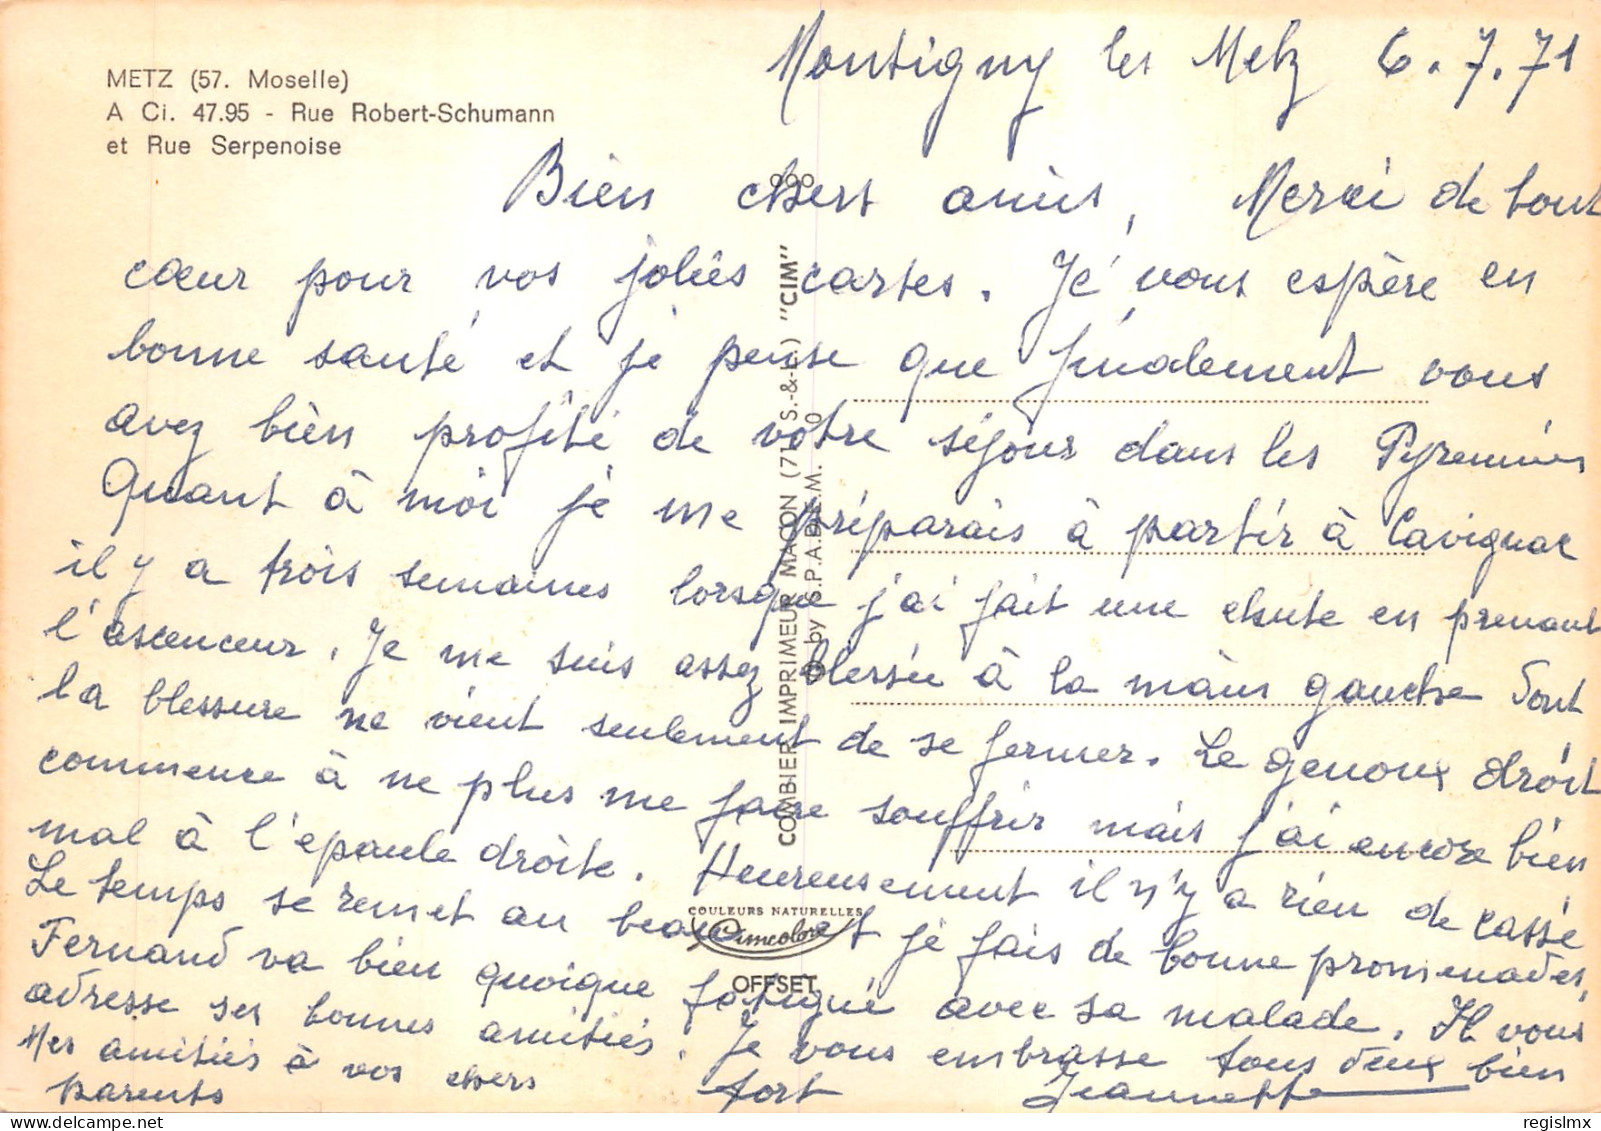 METZ (57. Moselle)
A Ci. 47.95 - Rue Robert-Schumann
et Rue Serpenoise
Montigny les Metz 6.7.71
Bien chers amis, Merci de tout
cœur pour vos jolies cartes. Je vous espère en
bonne santé et je pense que finalement vous
avez bien profité de votre séjour dans les Pyrennées
Quant à moi je me préparais à partir à Cavignac
il y a trois semaines lorsque j'ai fait une chute en prenant
l'ascenceur. Je me suis assez blessée à la main gauche dont
la blessure ne vient seulement de se fermer. Le genoux droit
commence à ne plus me faire souffrir mais j'ai encore bien
mal à l'épaule droite. Heureusement il n'y a rien de cassé
Le temps se remet au beau et je fais de bonne promenades,
Fernand va bien quoique fatigué avec sa malade. Il vous
adresse ses bonnes amitiés. Je vous embrasse tous deux bien
fort Jeannette
Mes amitiés à vos chers
parents
990
COMBIER IMPRIMEUR MACON (71 S.-&-L.) "CIM"
by S.P.A.D.E.M.
COULEURS NATURELLES
Cimcolor
OFFSET
regislmx